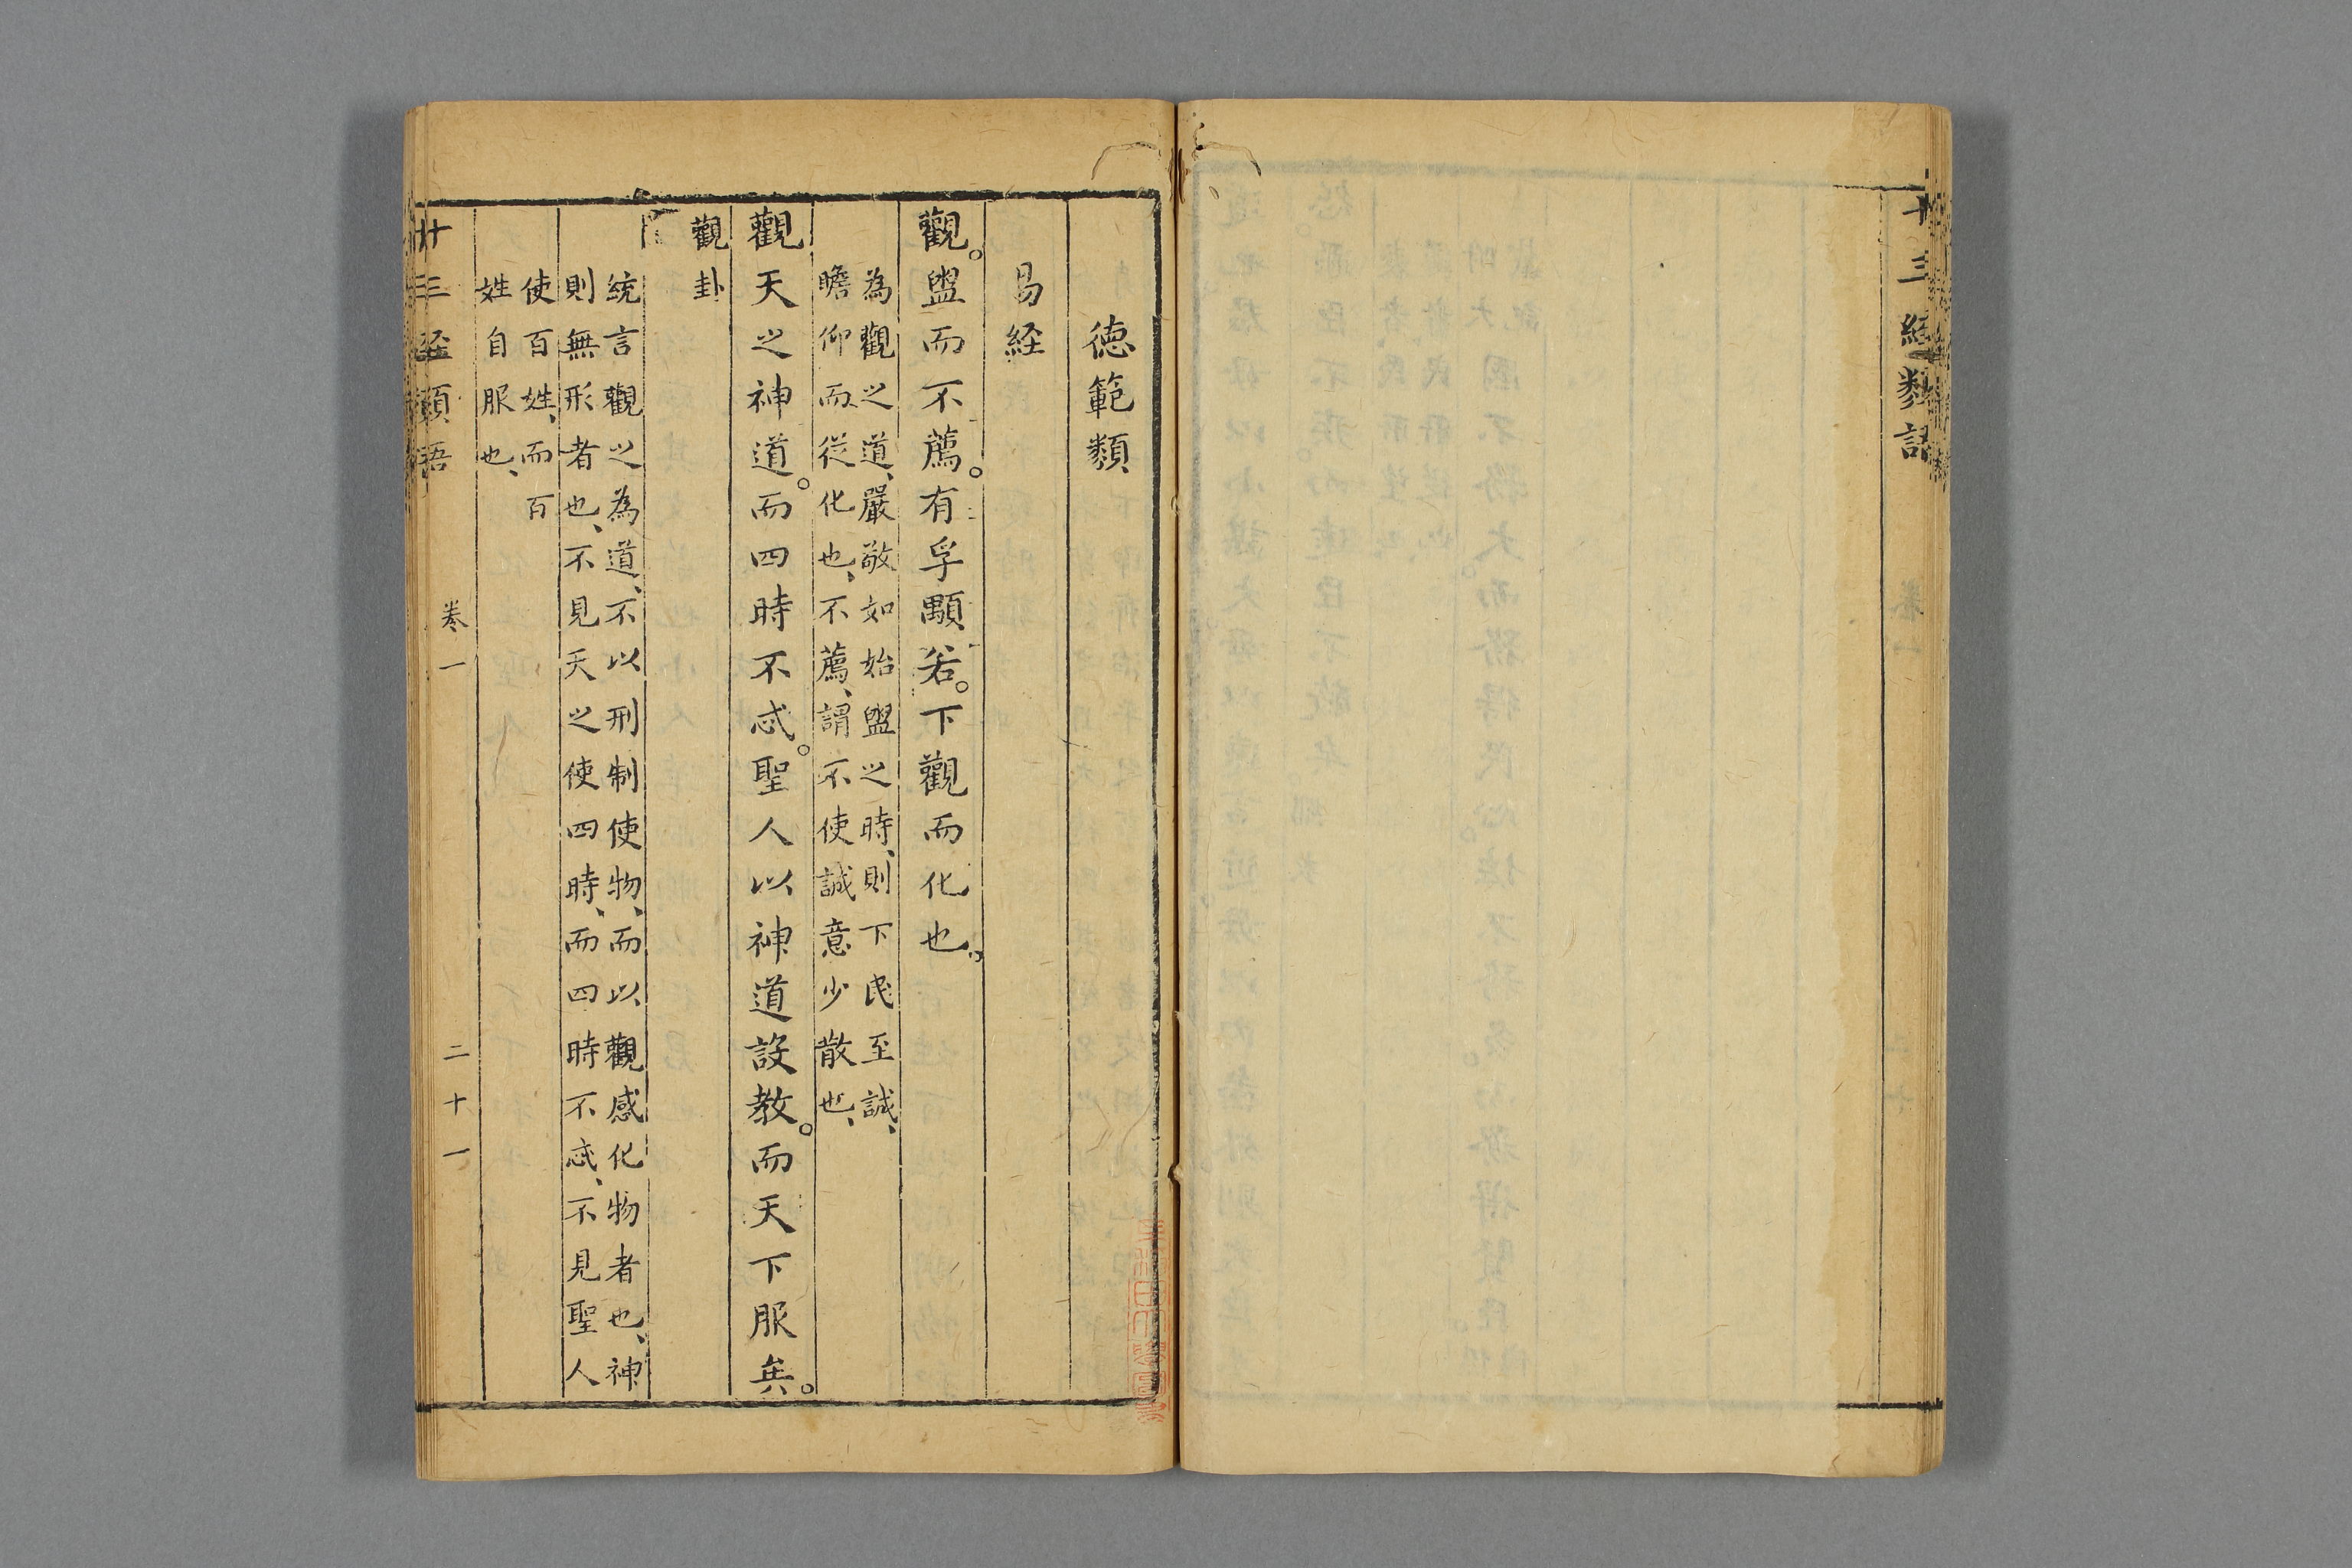 十三經類語
德範類
易経
觀。盥而不薦。有孚顒若。下觀而化也。
為觀之道、嚴敬如始盥之時、則下民至誠、
瞻仰而從化也、不薦、謂不使誠意少散也、
觀天之神道。而四時不忒。聖人以神道設教。而天下服矣。
觀卦
統言觀之為道、不以刑制使物、而以觀感化物者也、神
則無形者也、不見天之使四時、而四時不忒、不見聖人
使百姓、而百
姓自服也、
十三経類語
卷一
二十一